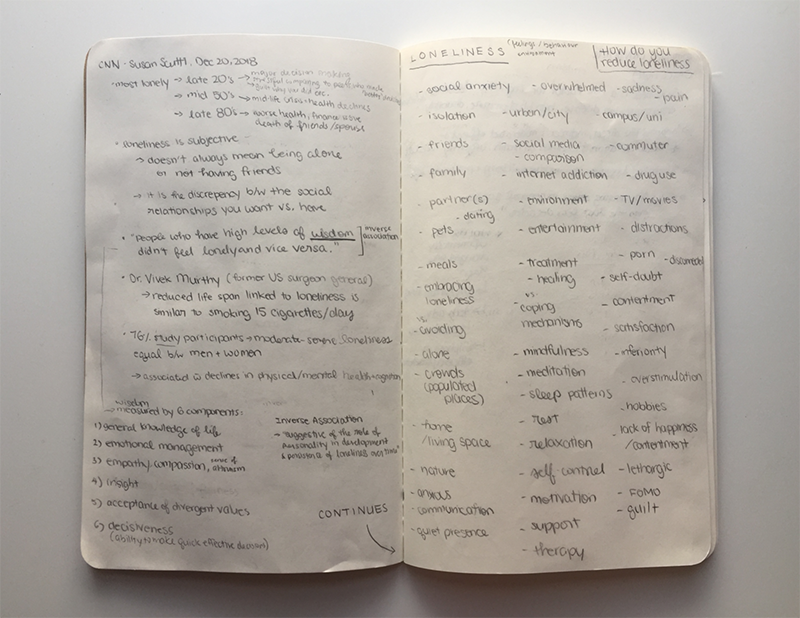 CNN - Susan Scutti, Dec 20, 2018
- most lonely → late 20's → major decision making
→ mid 50's → midlife crisis + health declines
→ late 80's → worse health, finance issue
death of friends/spouses
• loneliness is subjective
→ doesn't always mean being alone
or not having friends
→ it is the discrepancy b/w the social
relationships you want vs. have
• "people who have high levels of wisdom
didn't feel lonely and vice versa."
inverse
association
• Dr. Vivek Murthy (former US surgeon general)
→ reduced life span linked to loneliness is
similar to smoking 15 cigarettes/day
• 76% study participants → moderate-severe loneliness
equal b/w men + women
→ associated declines in physical/mental health + cognition
wisdom
→ measured by 6 components:
1) general knowledge of life
2) emotional management
3) empathy compassion, sense of
altruism
4) insight
5) acceptance of divergent values
6) decisiveness
(ability to make quick effective decisions)
Inverse Association
→ "suggestive of the role of
personality in development
& persistence of loneliness over time"
CONTINUES
LONELINESS (feelings/behaviour
How do you
reduce loneliness
- social anxiety
- isolation
- friends
- family
- partner(s)
- dating
- pets
- meals
- embracing
loneliness
vs.
avoiding
- alone
- crowds
(populated
places)
- home
/living space
- nature
- anxious
- communication
- quiet presence
- overwhelmed
- urban/city
- social media
- comparison
- internet addiction
- environment
- entertainment
- treatment
- healing
vs.
- coping
mechanisms
- mindfulness
- meditation
- sleep patterns
- rest
- relaxation
- self control
- motivation
- support
- therapy
- sadness
- pain
- campus/uni
- commuter
- drug use
- TV/movies
- distractions
- porn
- disconnected
- self-doubt
- contentment
- satisfaction
- inferiority
- overstimulation
- hobbies
- lack of happiness
/contentment
- lethargic
- FOMO
- guilt